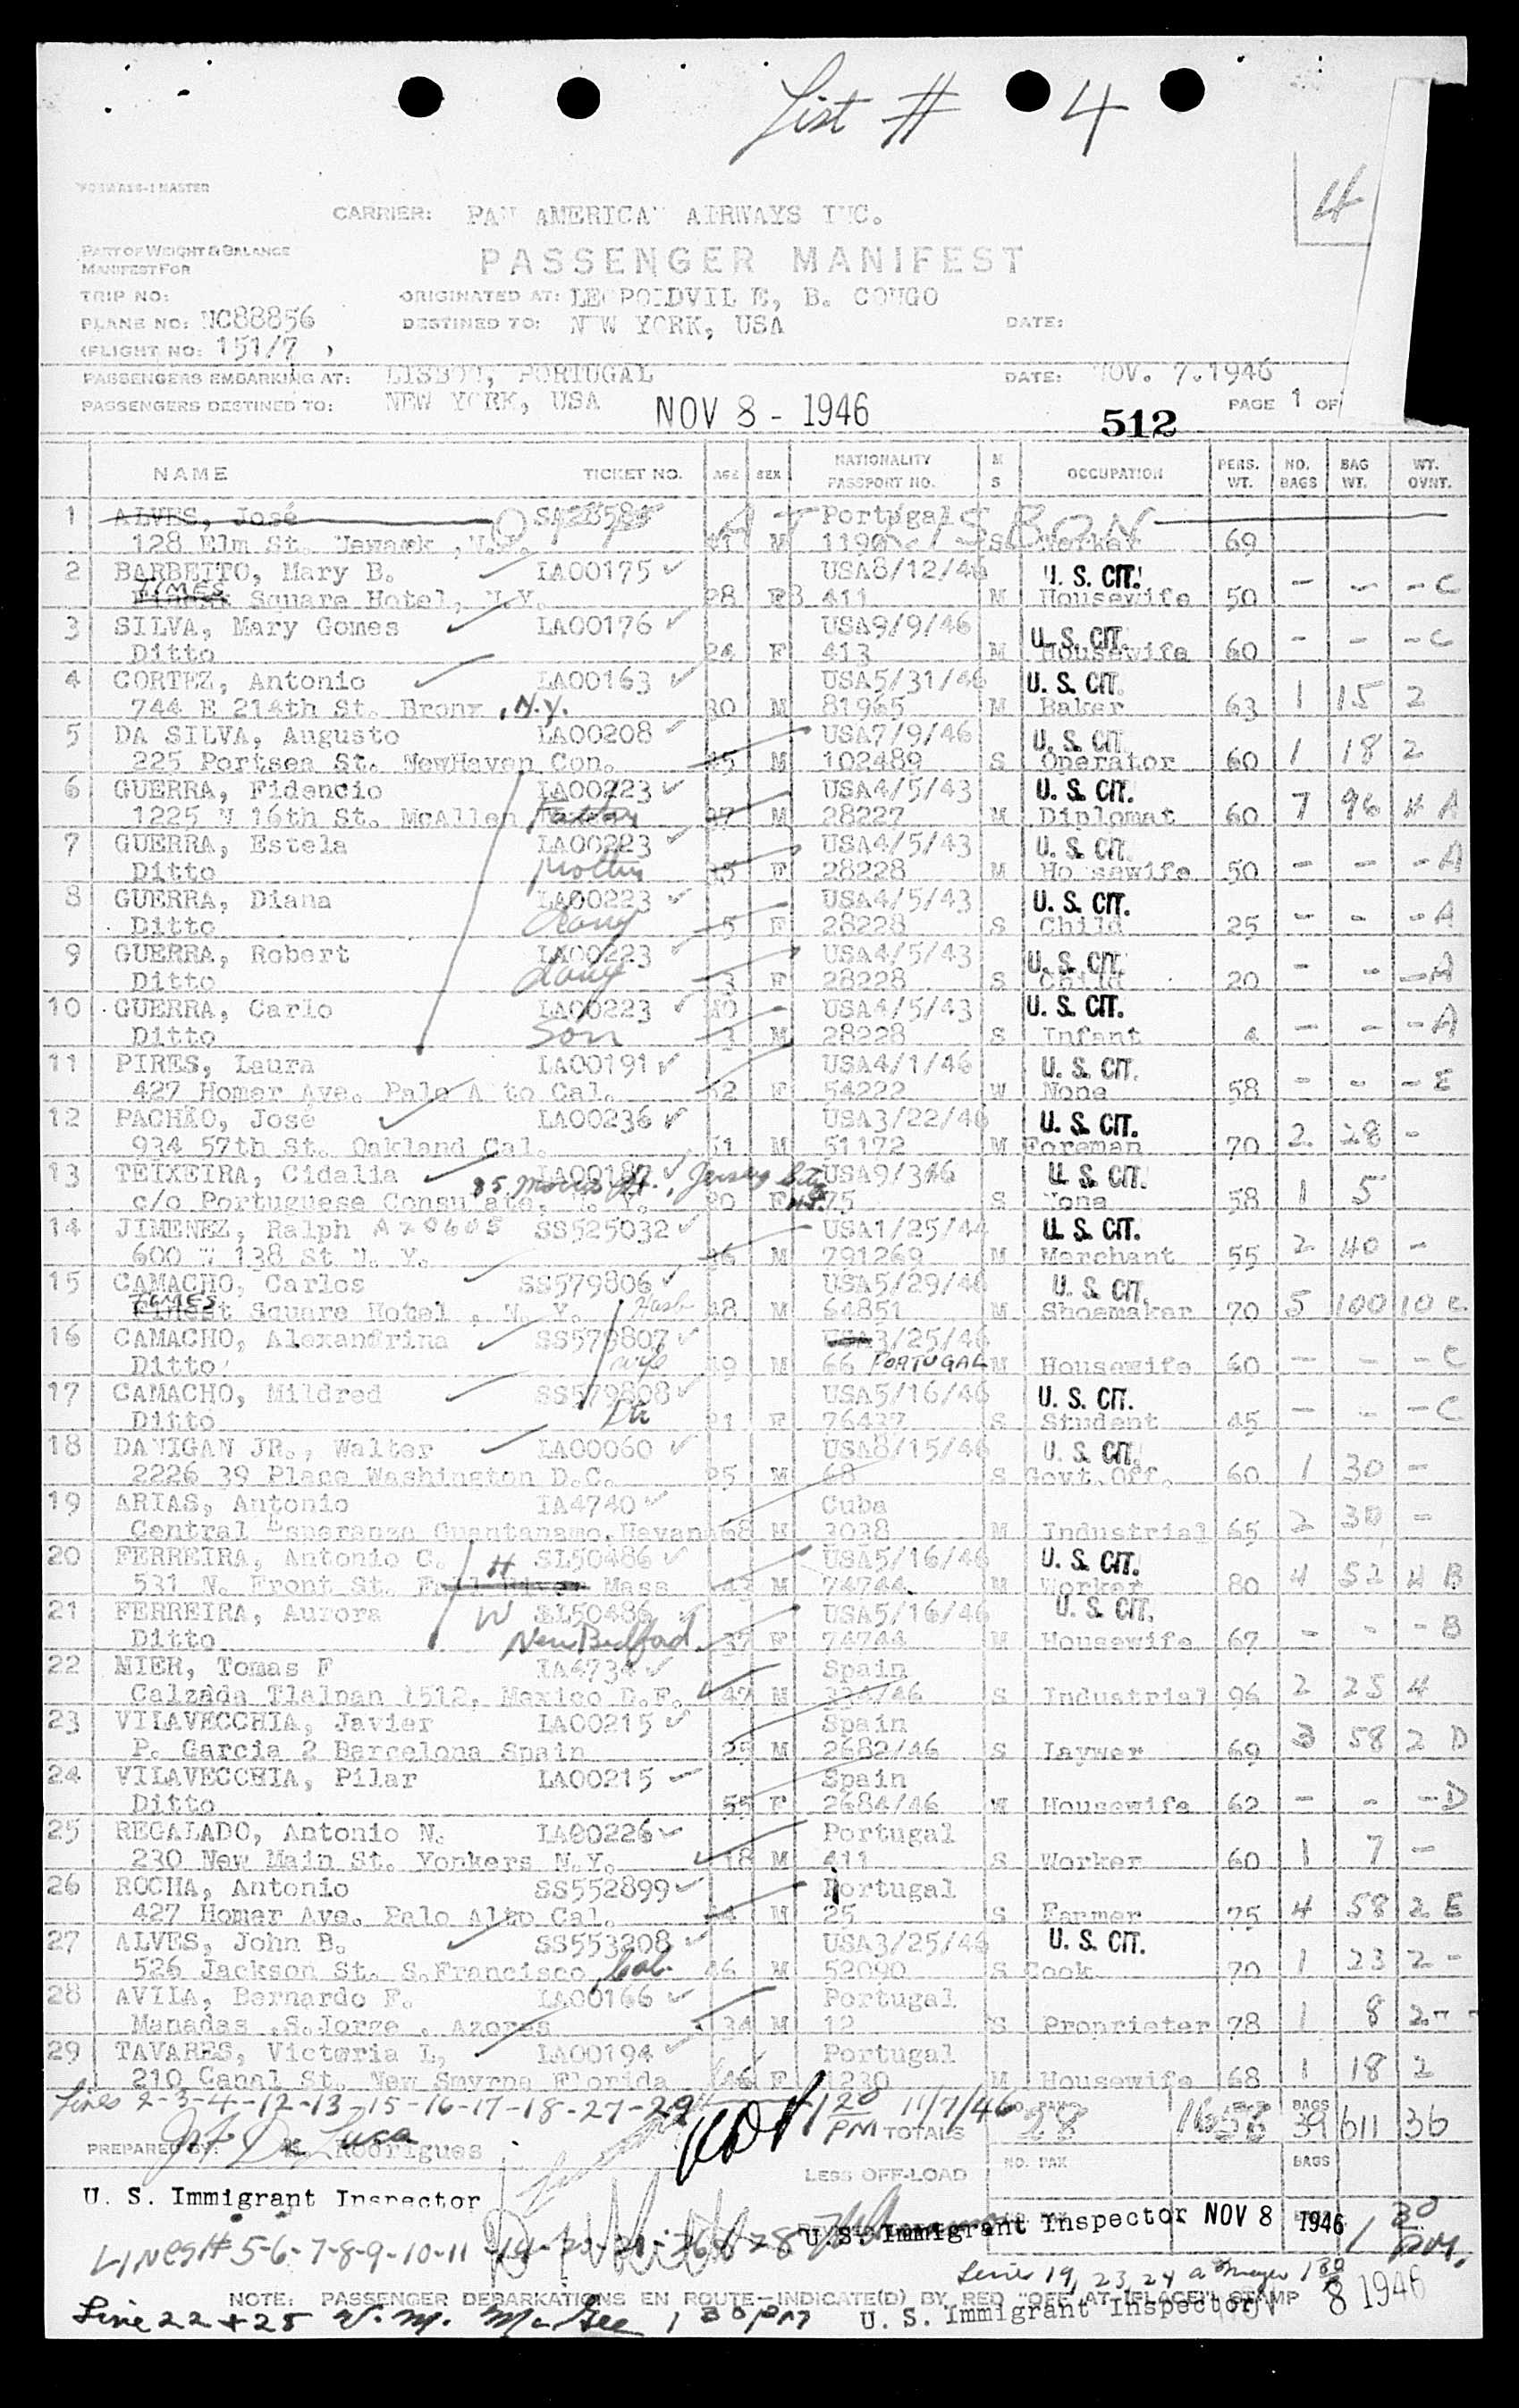 List # 4
4
CARRIER: PAN AMERICAN AIRWAYS INC.
PART OF WEIGHT & BALANCE
MANIFEST FOR
PASSENGER MANIFEST
TRIP NO:
ORIGINATED AT: LEOPOLDVILLE, B. CONGO
PLANE NO: NC88856
DESTINED TO: NEW YORK, USA
DATE:
(FLIGHT NO: 151/7 )
PASSENGERS EMBARKING AT: LISBON, PORTUGAL
DATE: NOV. 7.1946
PASSENGERS DESTINED TO: NEW YORK, USA
NOV 8 - 1946
512
PAGE 1 OF
NAME TICKET NO. AGE SEX NATIONALITY PASSPORT NO. M S OCCUPATION PERS. WT. NO. BAGS BAG WT. WT. OVNT.
1 ALVES, José Portugal
128 Elm St. Newark, N.J. M 1190 S Worker 69
AT LISBON
2 BARBEITO, Mary B. LA00175 USA8/12/46 U. S. CIT.
TIMES Square Hotel, N.Y. 28 F 411 M Housewife 50 - - - C
3 SILVA, Mary Gomes LA00176 USA9/9/46 U. S. CIT.
Ditto 24 F 413 M Housewife 60 - - - C
4 CORTEZ, Antonio LA00163 USA5/31/46 U. S. CIT.
744 E 214th St. Bronx, N.Y. 30 M 81965 M Baker 63 1 15 2
5 DA SILVA, Augusto LA00208 USA7/9/46 U. S. CIT.
225 Portsea St. NewHaven Con. 45 M 102489 S Operator 60 1 18 2
6 GUERRA, Fidencio LA00223 USA4/5/43 U. S. CIT.
1225 N 16th St. McAllen 37 M 28227 M Diplomat 60 7 96 4 A
7 GUERRA, Estela LA00223 USA4/5/43 U. S. CIT.
Ditto Mother 35 F 28228 M Housewife 50 - - - A
8 GUERRA, Diana LA00223 USA4/5/43 U. S. CIT.
Ditto 5 F 28228 S Child 25 - - - A
9 GUERRA, Robert LA00223 USA4/5/43 U. S. CIT.
Ditto 3 F 28228 S Child 20 - - - A
10 GUERRA, Carlo LA00223 USA4/5/43 U. S. CIT.
Ditto Son 1 M 28228 S Infant 4 - - - A
11 PIRES, Laura LA00191 USA4/1/46 U. S. CIT.
427 Homer Ave. Palo Alto Cal. 52 F 54222 W None 58 - - - E
12 PACHÃO, José LA00236 USA3/22/46 U. S. CIT.
934 57th St. Oakland Cal. 51 M 51172 M Foreman 70 2 28 -
13 TEIXEIRA, Cidalia LA00187 USA9/346 U. S. CIT.
85 Morris St., Jersey City N.J.
c/o Portuguese Consulate, N. Y. 20 F 75 S None 58 1 5
14 JIMENEZ, Ralph A20605 SS525032 USA1/25/44 U. S. CIT.
600 W 138 St N. Y. 36 M 791269 M Merchant 55 2 40 -
15 CAMACHO, Carlos SS579806 USA5/29/46 U. S. CIT.
TIMES Square Hotel, N. Y. Husb 48 M 64851 M Shoemaker 70 5 100 10 C
16 CAMACHO, Alexandrina SS579807 USA3/25/46
Ditto wife 49 M 66 PORTUGAL M Housewife 60 - - - C
17 CAMACHO, Mildred SS579808 USA5/16/46 U. S. CIT.
Ditto Dtr 21 F 76437 S Student 45 - - - C
18 DANIGAN JR., Walter LA00060 USA8/15/46 U. S. CIT.
2226 39 Place Washington D.C. 25 M 68 S Govt.Off. 60 1 30 -
19 ARIAS, Antonio IA4740 Cuba
Central Esperanza Guantanamo,Havana 68 M 3038 M Industrial 65 2 30 -
20 FERREIRA, Antonio C. H SL50486 USA5/16/46 U. S. CIT.
531 N. Front St. Fall River Mass 43 M 74744 M Worker 80 4 52 4 B
21 FERREIRA, Aurora W SL50486 USA5/16/46 U. S. CIT.
Ditto New Bedford 37 F 74744 M Housewife 67 - - - B
22 MIER, Tomas F IA4734 Spain
Calzada Tlalpan 1512, Mexico D.F. 47 M 334/46 S Industrial 96 2 25 4
23 VILAVECCHIA, Javier LA00215 Spain
P. Garcia 2 Barcelona Spain 25 M 2682/46 S Laywer 69 3 58 2 D
24 VILAVECCHIA, Pilar LA00215 Spain
Ditto 55 F 2684/46 W Housewife 62 - - - D
25 REGALADO, Antonio N. LA00226 Portugal
230 New Main St. Yonkers N.Y. 18 M 411 S Worker 60 1 7 -
26 ROCHA, Antonio SS552899 Portugal
427 Homer Ave. Palo Alto Cal. M 25 S Farmer 75 4 58 2 E
27 ALVES, John B. SS553208 USA3/25/46 U. S. CIT.
526 Jackson St. S.Francisco, Cal. 46 M 52090 S Cook 70 1 23 2 -
28 AVILA, Bernardo F. LA00166 Portugal
Manadas ,S.Jorge , Azores 34 M 12 S Proprieter 78 1 8 2 - -
29 TAVARES, Victoria L, LA00194 Portugal
210 Canal St. New Smyrna Florida 46 F 1230 M Housewife 68 1 18 2
Lines 2-3-4-12-13-15-16-17-18-27-29 1 20 PM 11/7/46
TOTALS NO. PAX 28 1658 BAGS 39 611 36
PREPARED BY: Rodrigues
LESS OFF-LOAD NO. PAX BAGS
U. S. Immigrant Inspector
U. S. Immigrant Inspector NOV 8 1946 1 30 PM.
LINES# 5-6-7-8-9-10-11-14-20-21-26 & 28
Lines 19, 23, 24 1 30
NOTE: PASSENGER DEBARKATIONS EN ROUTE—INDICATE(D) BY RED "OFF AT (PLACE)" STAMP
Line 22 + 25 W. M. McGee 1 30 PM
U. S. Immigrant Inspector NOV 8 1946